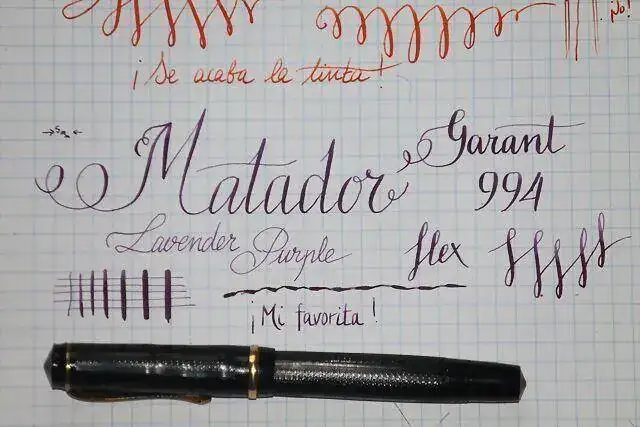 ¡No!
¡Se acaba la tinta!
5mm
Matador
Garant
994
Lavender Purple
flex
¡Mi favorita!